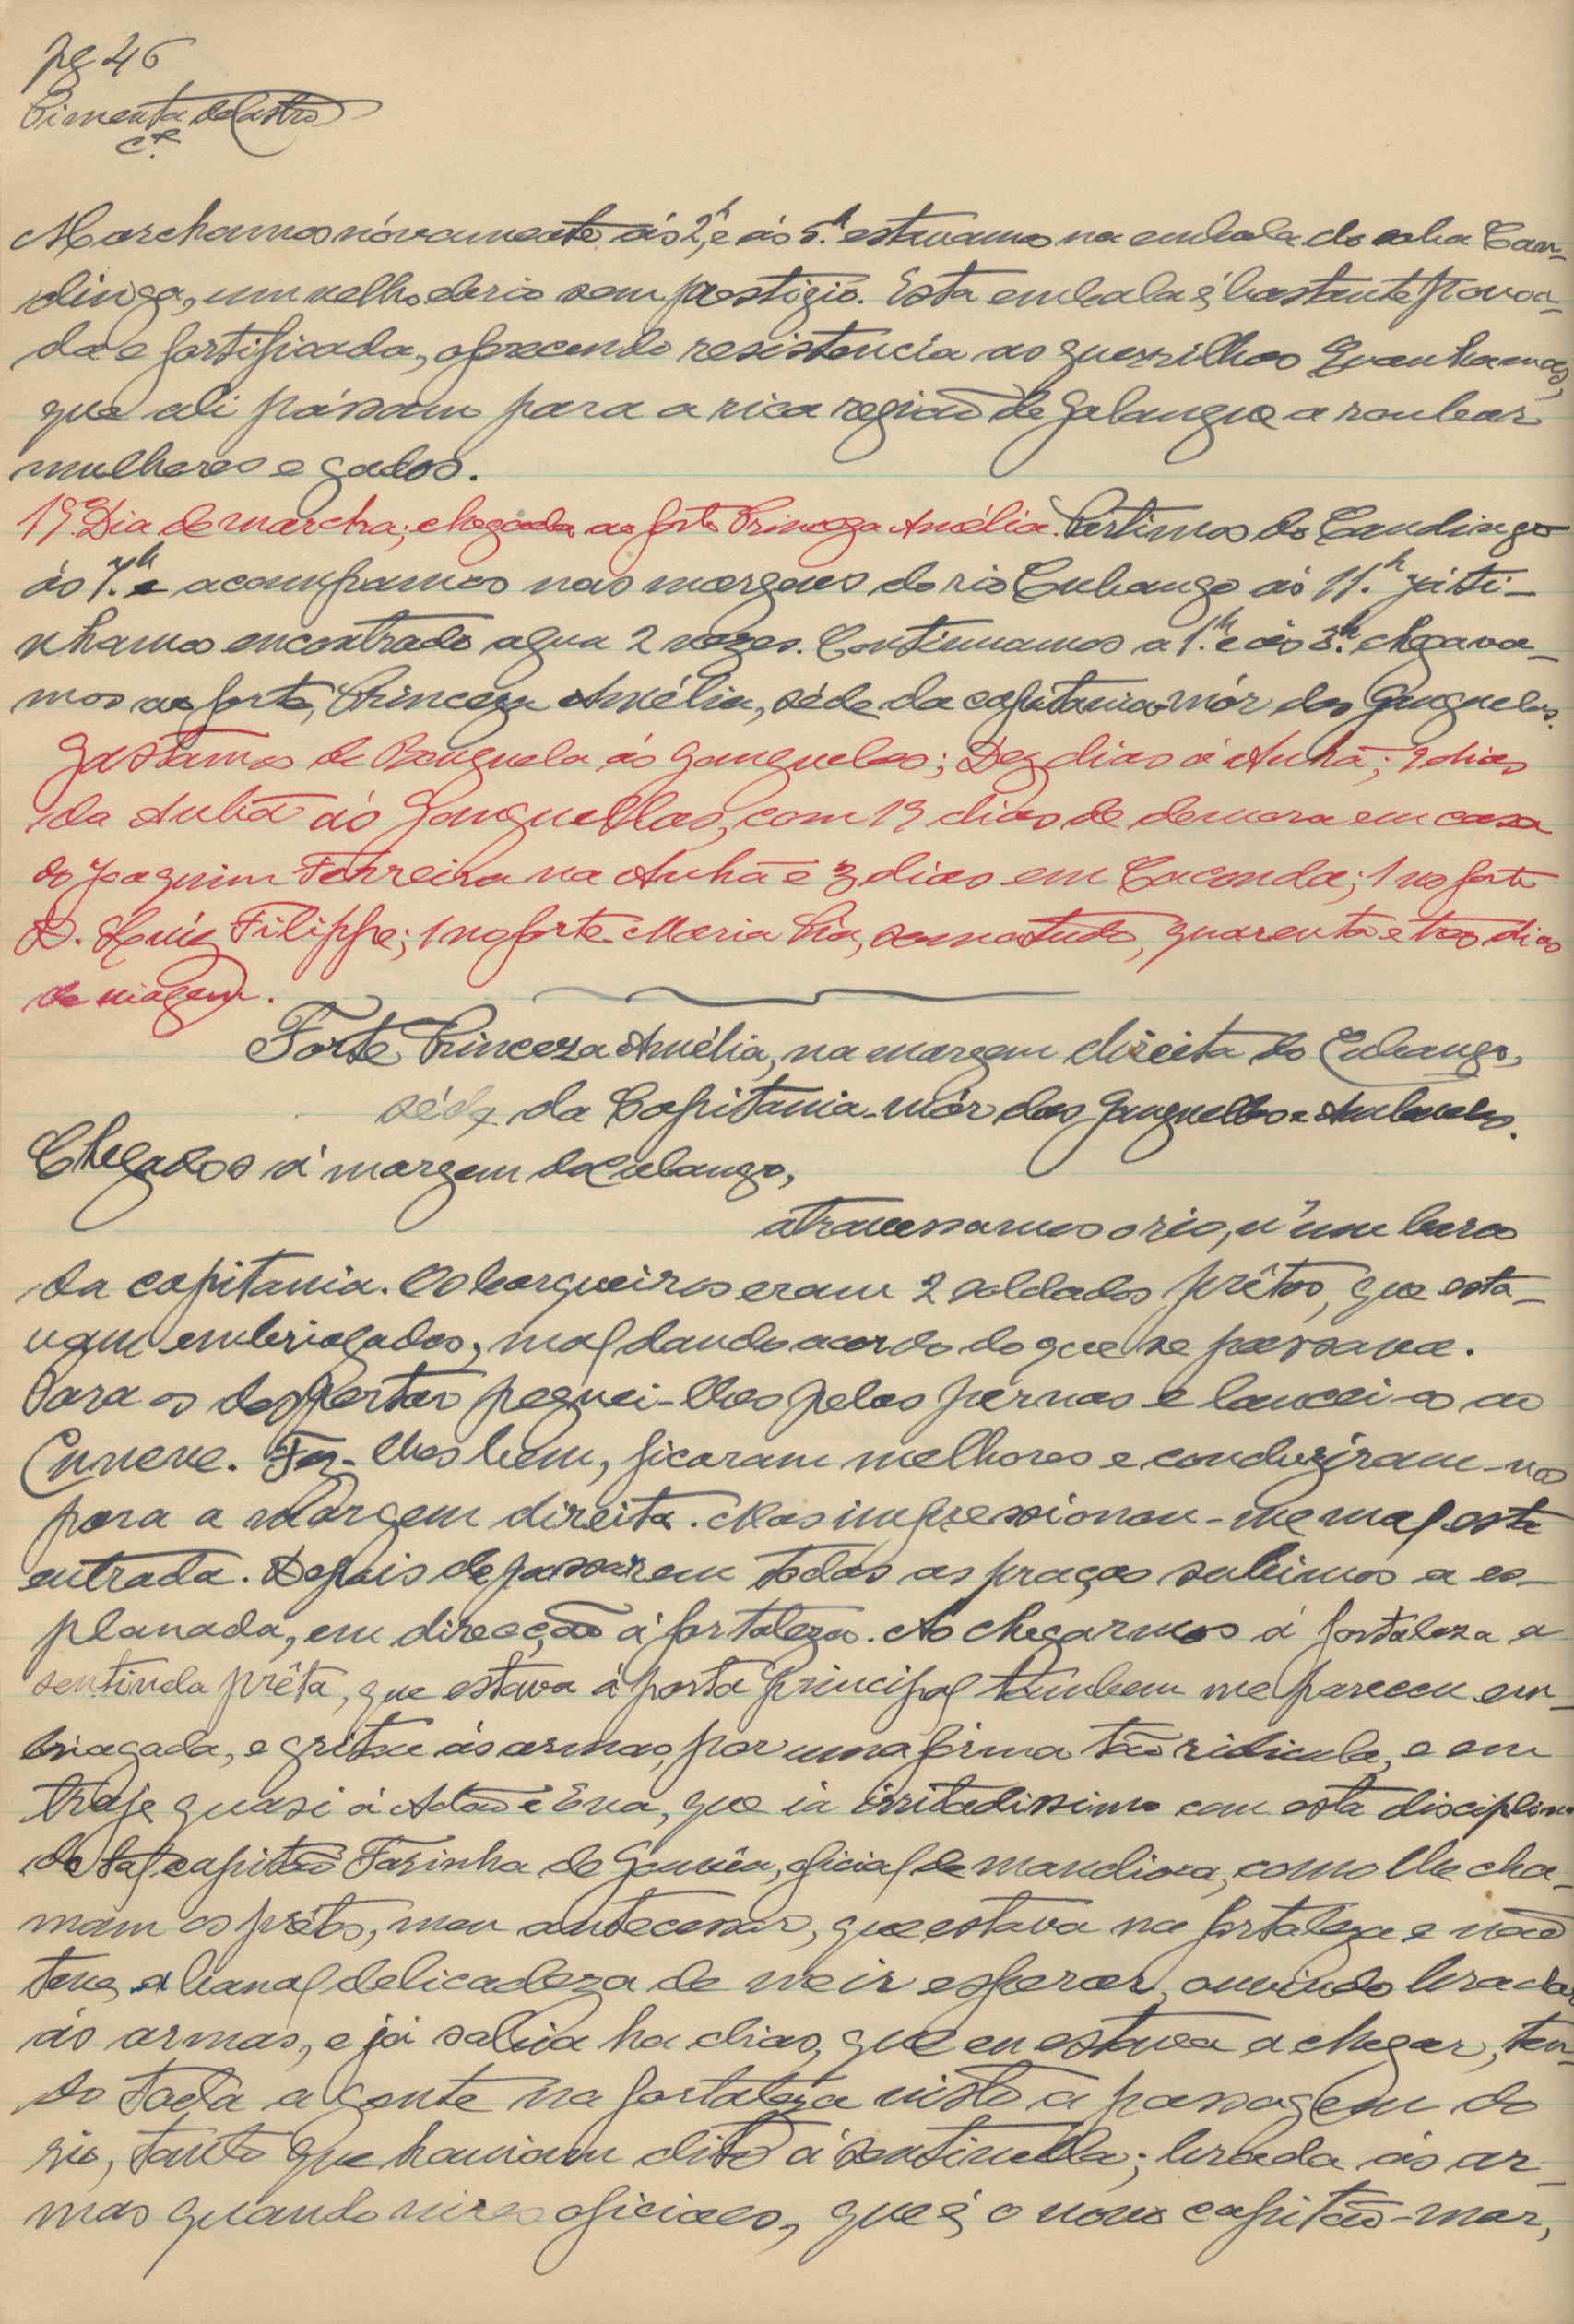 pg 46
Pimenta de Castro
Cel.
Marchamos nóvamente ás 2h, e ás 5.h estavamos na embala do soba Can-
dinga, um velho sem prestigio. Esta embala é bastante povoa-
da e fortificada, oferecendo resistencia as guerrilhas Quanhamas,
que ali pássam para a rica região de Galangue a roubar
mulheres e gados.
19º Dia de marcha; chegada ao forte Princeza Amélia. Partimos do Candingo
ás 7.h e acampamos nas margens do rio Cubango ás 11.h já ti-
nhamos encontrado agua 2 vezes. Continuamos a 1.h e ás 3.h chegava-
mos ao forte, Princeza Amélia, séde da capitania-mór dos Ganguelas.
Gastamos de Benguela ás Ganguelas; Dez dias á Anhã; 9 dias
da Anhã ás Ganguellas, com 19 dias de demora em casa
do Joaquim Ferreira na Anhã e 3 dias em Caconda; 1 no forte
D. Luiz Filippe; 1 no forte Maria Pia, soma tudo, quarenta e tres dias
de viagem.
Forte Princeza Amélia, na margem direita do Cubango,
séde da Capitania-mór das Ganguellas e Ambuelas.
Chegados á margem do Cubango,
atravessamos o rio, n'um barco
da capitania. Os barqueiros eram 2 soldados prêtos, que esta-
vam embriagados, mal dando acordo do que se passava.
Para os despertar peguei-lhes pelas pernas e lancei-os ao
Cunene. Fez-lhes bem, ficaram melhores e conduziram-nos
para a margem direita. Mas impressionou-me mal esta
entrada. Depois de passarem todas as praças subimos a es-
planada, em direcção á fortaleza. Ao chegarmos á fortaleza a
sentinela prêta, que estava á porta principal tambem me pareceu em-
briagada, e gritou ás armas, por uma fórma tão ridicula, e em
traje quasi á Adão e Eva, que ia irritadissimo com esta disciplina
do tal capitão Farinha de Gouvêa, oficial de mandioca, como lhe cha-
mam os prêtos, meu antecessor, que estava na fortaleza e não
teve a banal delicadeza de me ir esperar, ouvindo bradar
ás armas, e já sabia ha dias, que eu estava a chegar, ten-
do toda a gente na fortaleza visto a passagem do
rio, tanto que haviam dito á sentinella; brada ás ar-
mas quando vires oficiaes, que é o novo capitão-mór,